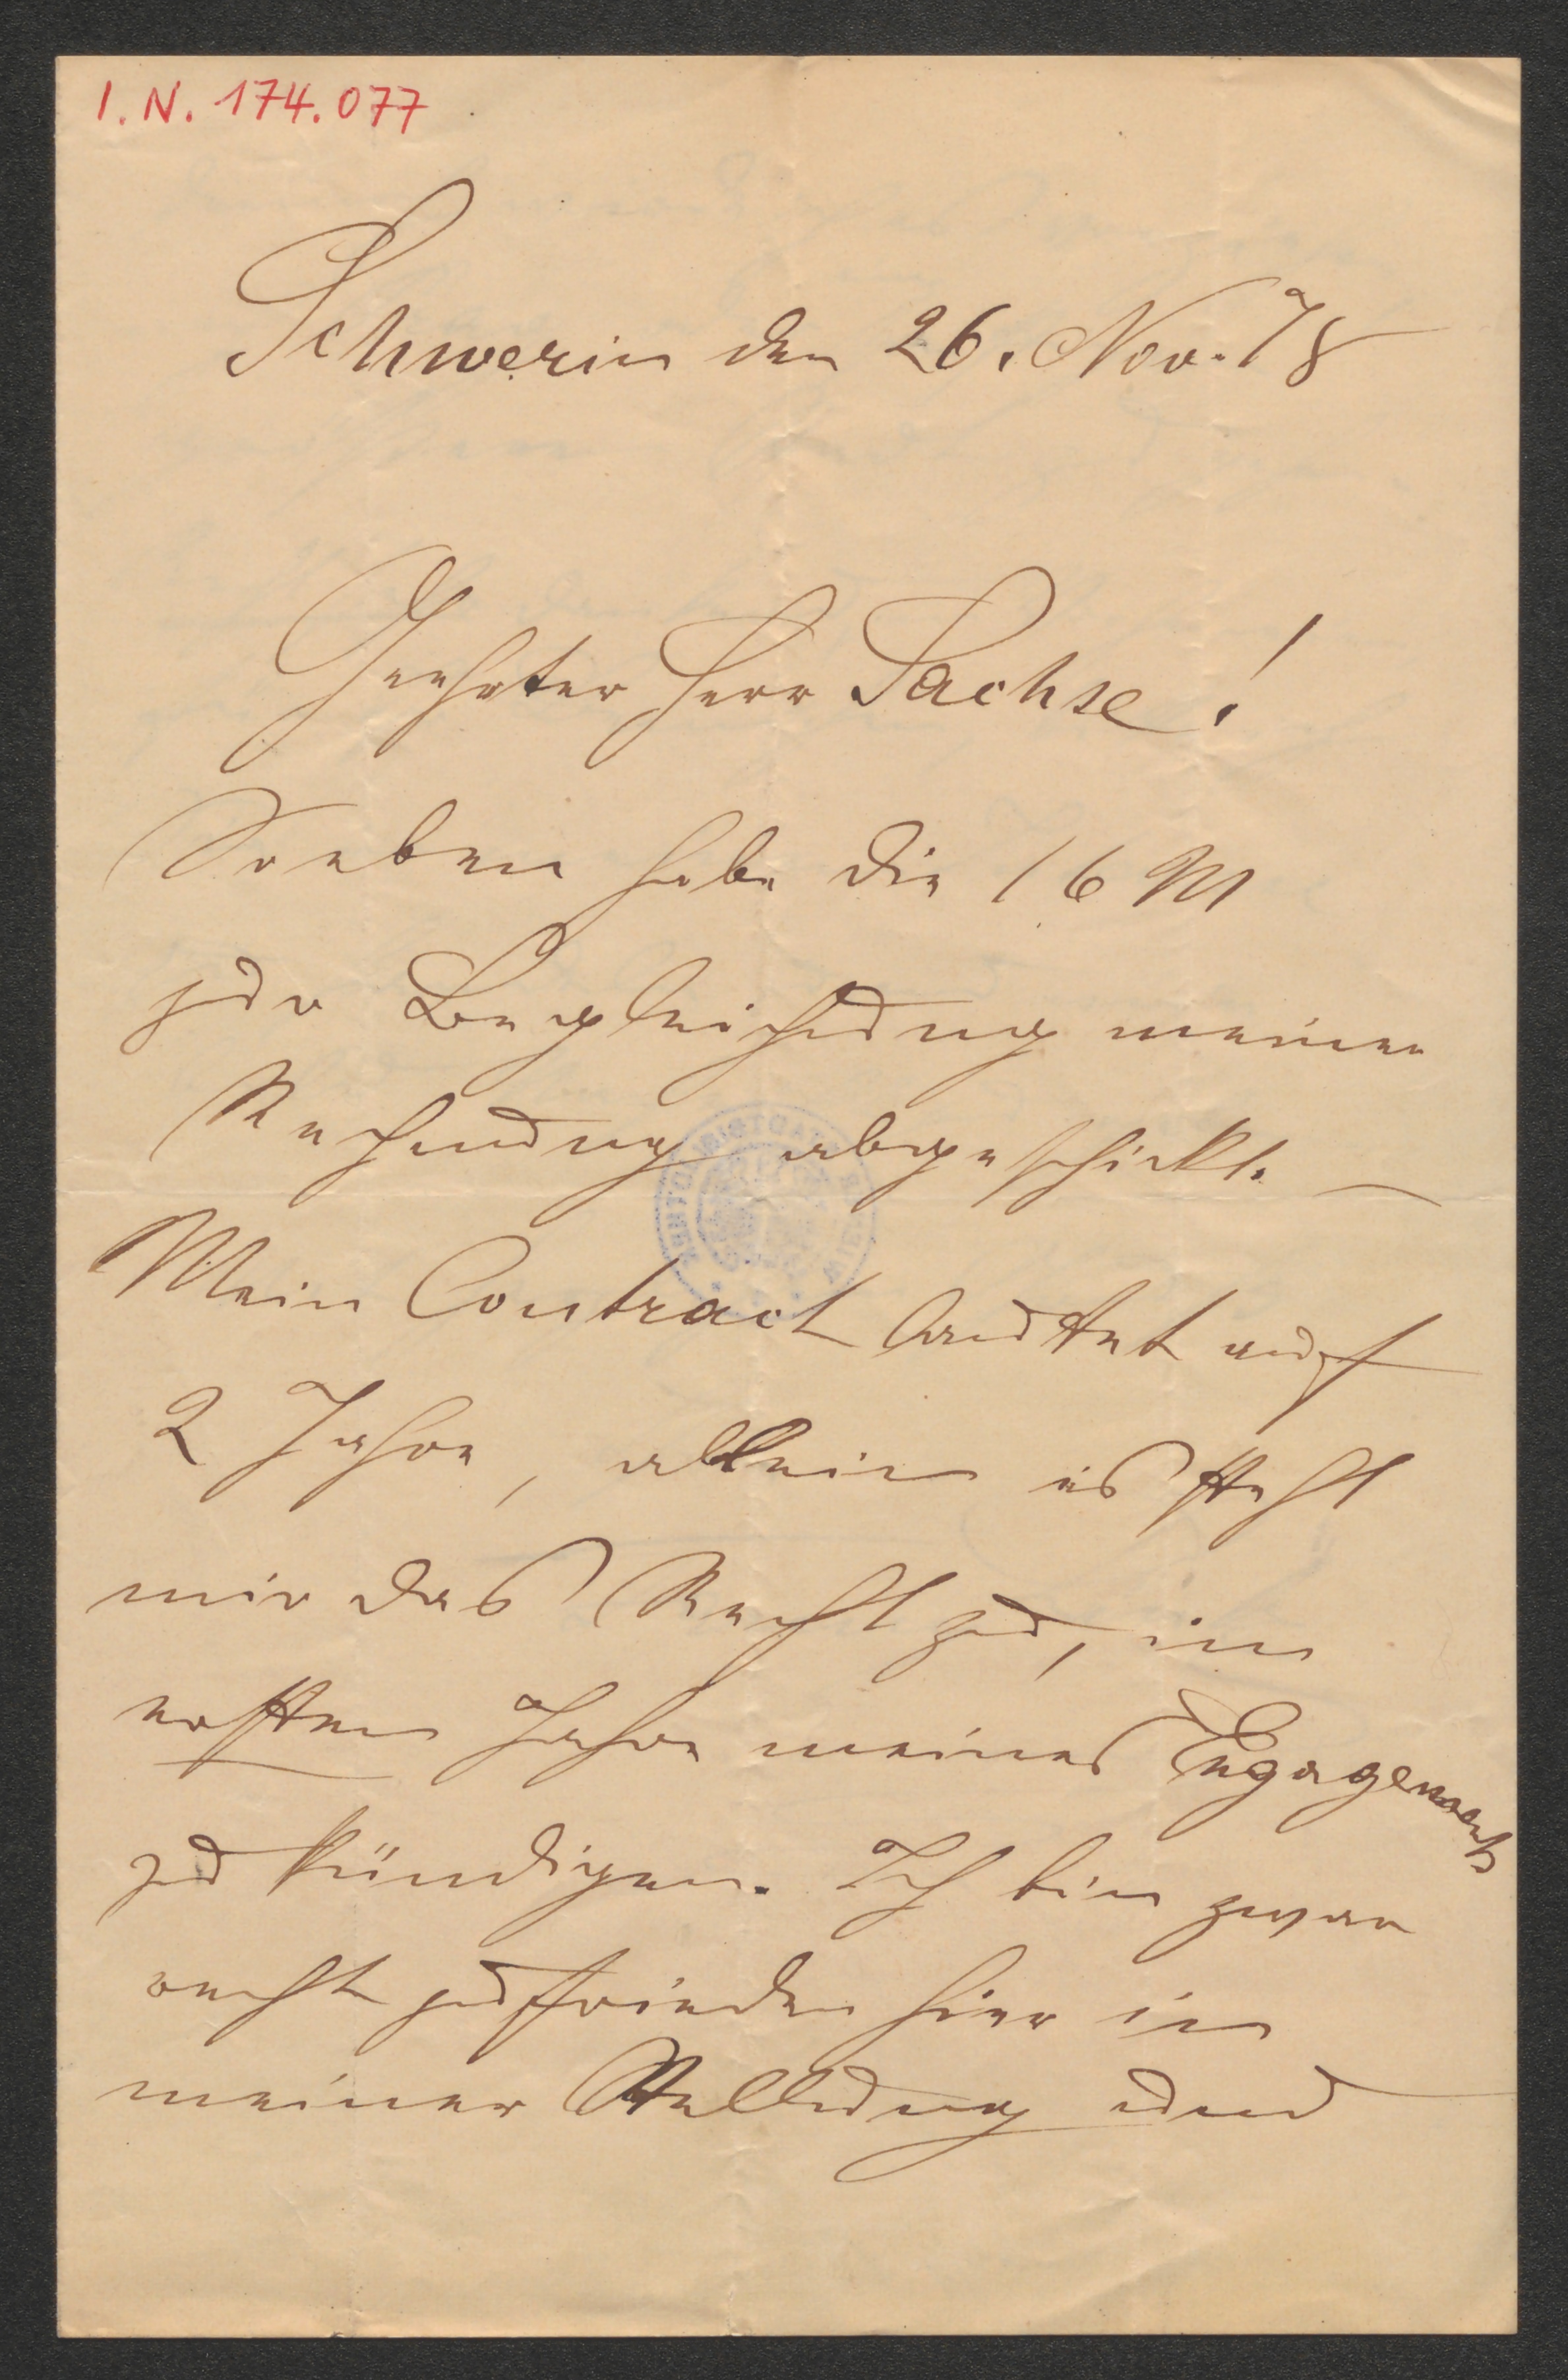 I.N. 174.077
Schwerin den 26. Nov. 78
Geehrter Herr Sachse!
Soeben habe die 16 M
zur Begleichung meiner
Rechnung abgeschickt. —
Mein Contract lautet auf
2 Jahre, allein es steht
mir das Recht zu, im
ersten Jahre meines Engagements
zu kündigen. Ich bin zwar
recht zufrieden hier in
meiner Stellung und